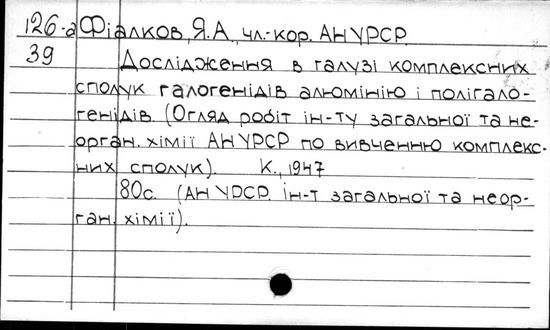 126-а Фіалков, Я.А., чл.-кор. АН УРСР.
39 Дослідження в галузі комплексних
сполук галогенідів алюмінію і полігало-
генідів. (Огляд робіт ін-ту загальної та не-
орган. хімії АН УРСР по вивченню комплекс-
них сполук). К., 1947
80с. (АН УРСР. Ін-т загальної та неор-
ган. хімії).